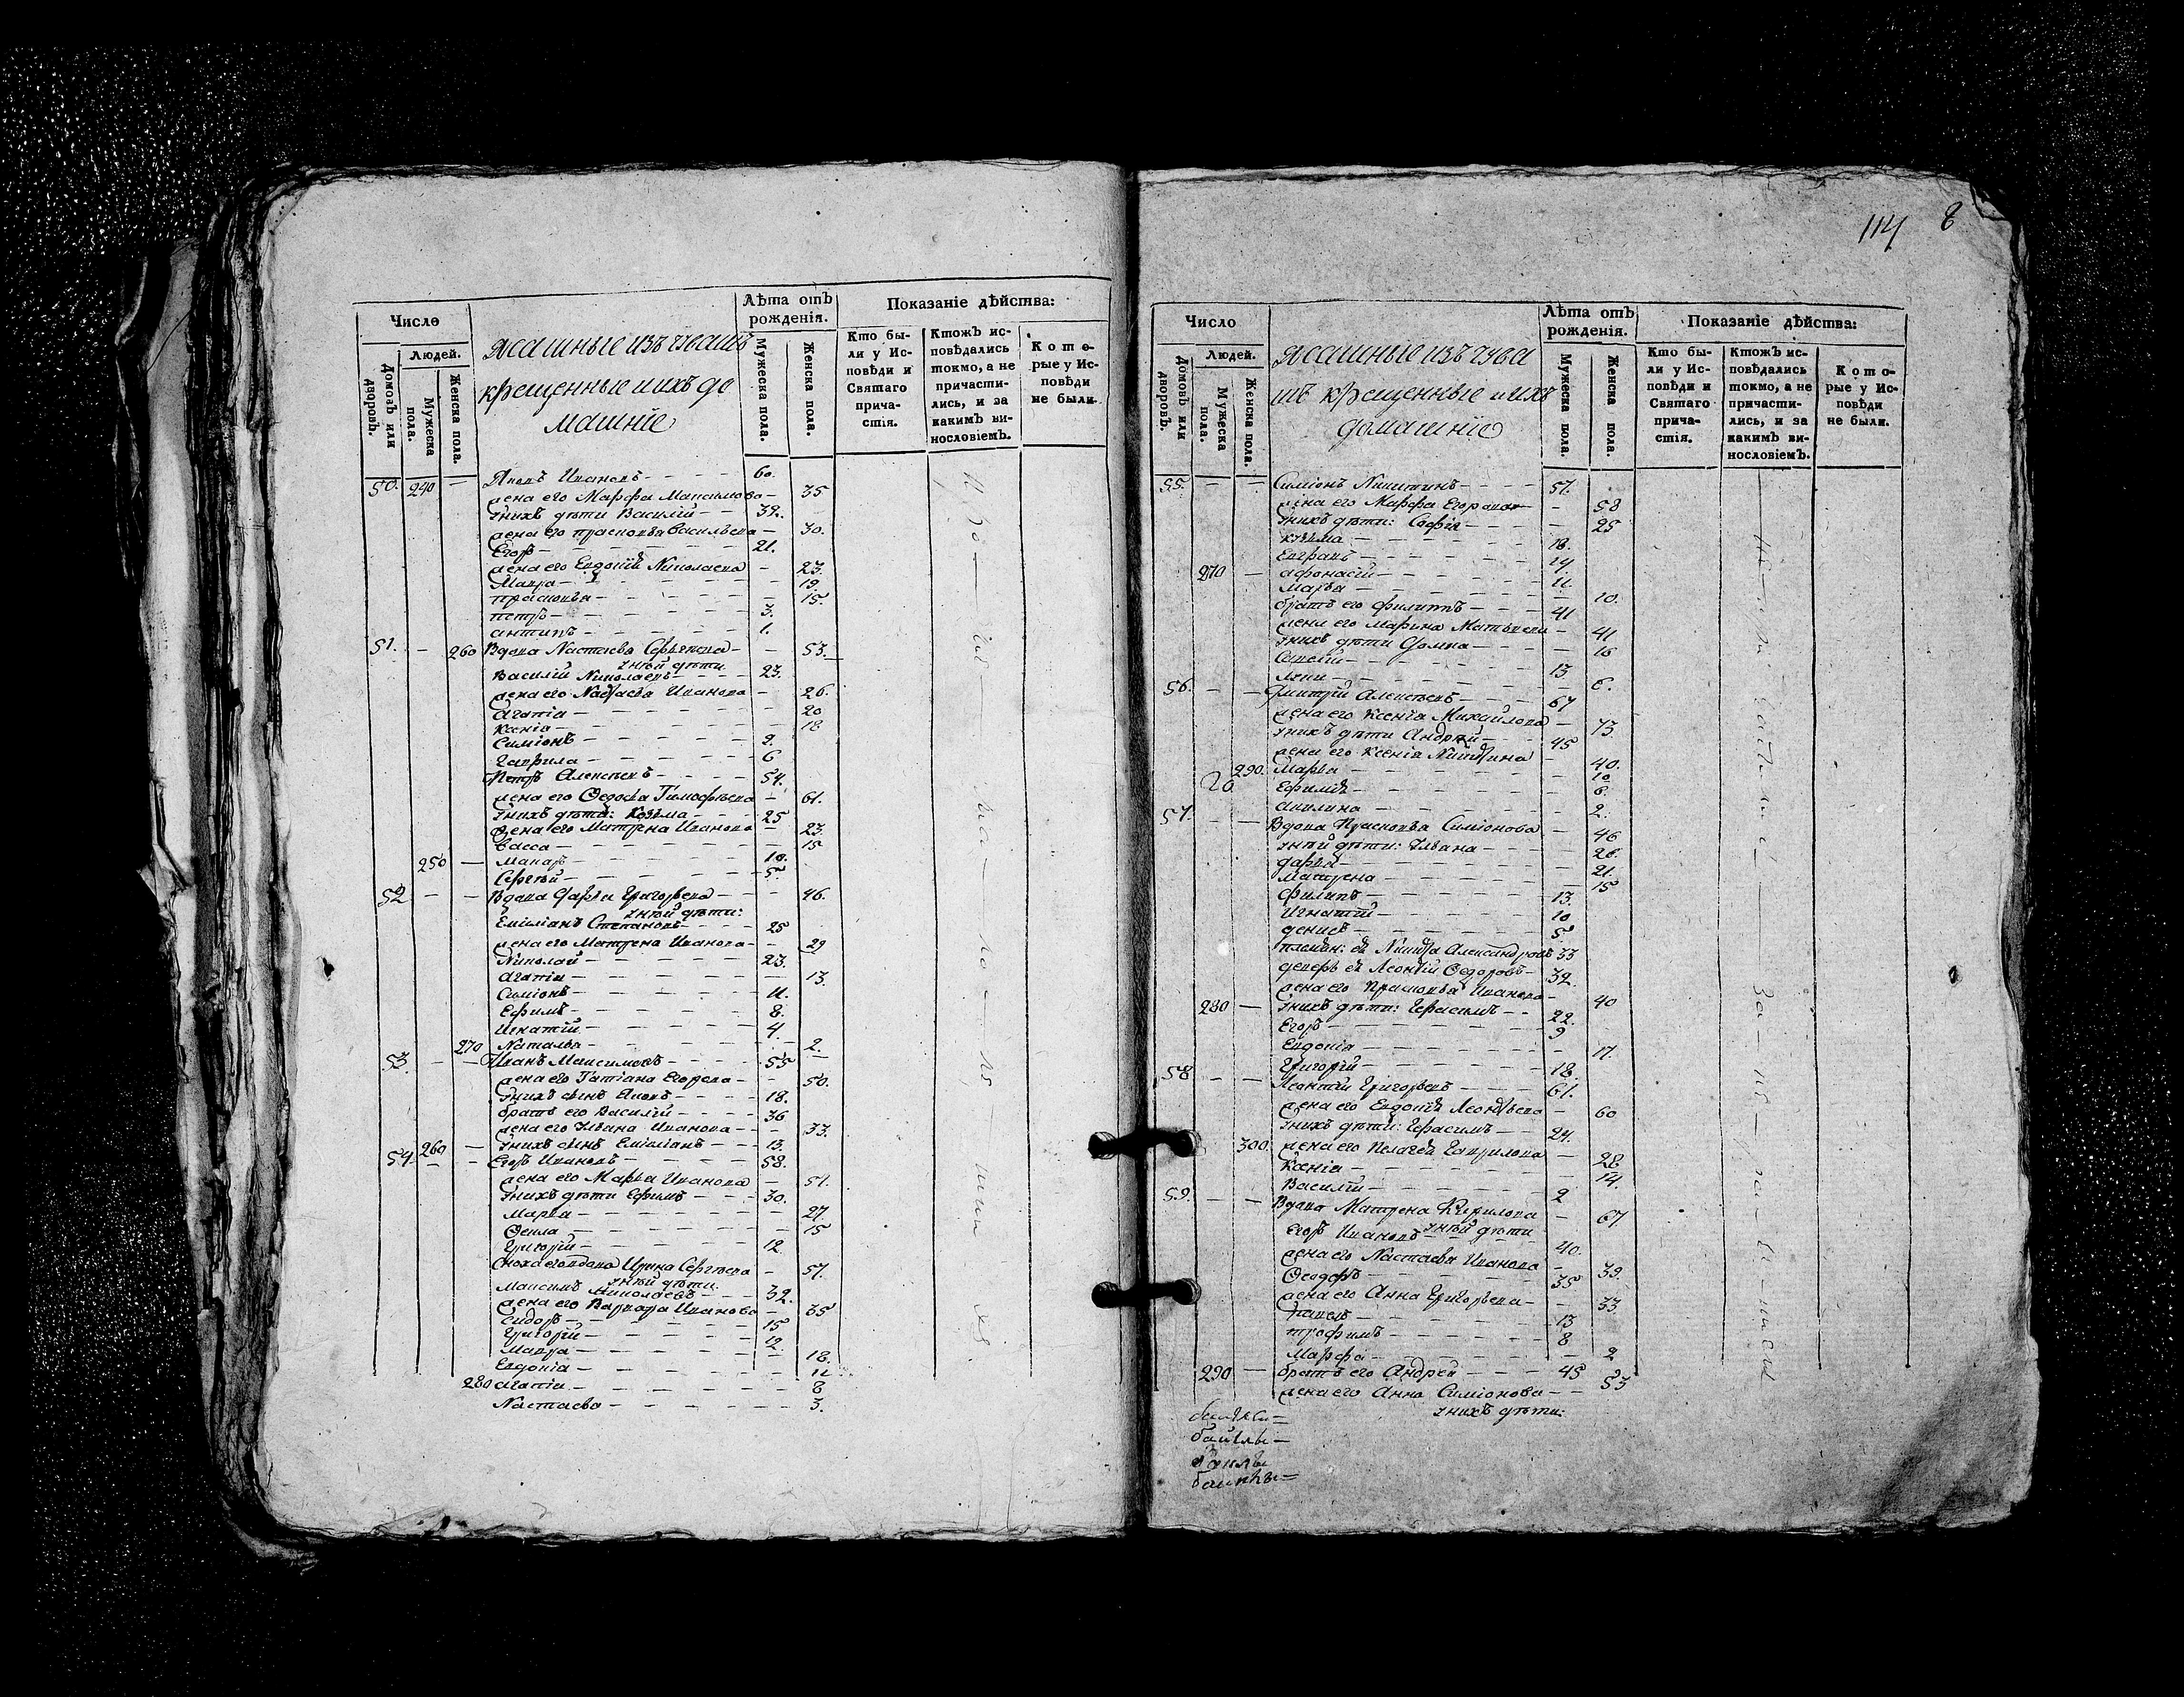 Число
Людей.
Домовъ или дворовъ.
Мужеска пола.
Женска пола.
Ясашные изъ чувашъ
крещенные и ихъ до
машніе
Лѣта отъ рожденія.
Мужеска пола.
Женска пола.
Показаніе дѣйства:
Кто бы-
ли у Ис-
повѣди и
Святаго
прича-
стія.
Ктожъ ис-
повѣдались
токмо, а не
причасти-
лись, и за
какимъ ви-
нословіемъ.
Кото-
рые у Ис-
повѣди
не были.
50. 240 — Яковъ Ивановъ — 60.
жена его Марфа Максимова — 35
у нихъ дѣти Василій — 39.
жена его Прасковья Васильева — 30.
Егоръ — 21.
жена его Евдокія Николаева — 23.
Мавра — 19.
Прасковья — 15.
Петръ — 3.
Антипъ — 1.
51. — 260 Вдова Настасья Сергѣева — 53.
у ней дѣти
Василій Николаевъ — 23.
жена его Настасья Иванова — 26.
Агапія — 20
Ксенія — 18
Симіонъ — 9.
Гаврила — 6
Петръ Алексѣевъ — 54.
жена его Федосья Тимофѣева — 61.
у нихъ дѣти: Козьма — 25
жена его Матрена Иванова — 23.
Васса — 15
250 — Макаръ — 10.
Сергѣй — 5.
52 — — Вдова Дарья Григорьева — 46.
у ней дѣти:
Емиліанъ Степановъ — 25
жена его Матрена Иванова — 29
Николай — 23.
Агапія — 13.
Симіонъ — 11.
Ефимъ — 8.
Игнатій — 4.
270 Наталья — 2.
53. — — Иванъ Максимовъ — 55
жена его Татіана Егорова — 50.
у нихъ сынъ Яковъ — 18.
братъ его Василій — 36
жена его Ульяна Иванова — 33.
260 — у нихъ сынъ Емиліанъ — 13.
54. — — Егоръ Ивановъ — 58.
жена его Марья Иванова — 51.
у нихъ дѣти Ефимъ — 30.
Марья — 27
Фекла — 15
Григорій — 12.
Сноха его вдова Ирина Сергѣева — 57.
у ней дѣти
Максимъ Николаевъ — 32.
жена его Варвара Иванова — 35
Сидоръ — 15
Григорій — 12.
Мавра — 18.
Евдокія — 11
280 Агапія — 8
Настасья — 3.
114 8
Число
Людей.
Домовъ или дворовъ.
Мужеска пола.
Женска пола.
Ясашные изъ чува
шъ крещенные и ихъ
домашніе
Лѣта отъ рожденія.
Мужеска пола.
Женска пола.
Показаніе дѣйства:
Кто бы-
ли у Ис-
повѣди и
Святаго
прича-
стія.
Ктожъ ис-
повѣдались
токмо, а не
причасти-
лись, и за
какимъ ви-
нословіемъ.
Кото-
рые у Ис-
повѣди
не были.
55. — — Симіонъ Никитинъ — 57.
жена его Марфа Егорова — 58
у нихъ дѣти: Софія — 25
Кузьма — 18.
Евграфъ — 14.
270 — Афонасій — 11.
Марья — 10.
братъ его Филиппъ — 41
жена его Марина Матвѣева — 41
у нихъ дѣти Домна — 16
13.
6.
56. — — Дмитрій Алексѣевъ — 67
жена его Ксенія Михайлова — 73
у нихъ дѣти Андрей — 45
жена его Ксенія Никитина — 40.
290. Марья — 10
Ефимія — 6.
Акилина — 2.
57. — — Вдова Прасковья Симіонова — 46
у ней дѣти: Ульяна — 26.
Дарья — 21.
Матрена — 15
Филипъ — 13.
Игнатій — 10
Денисъ — 5
племян: ея Никита Александровъ 33
деверь ея Леонтій Федоровъ — 32.
жена его Прасковья Иванова — 40
280 — у нихъ дѣти: Герасимъ — 22.
Егоръ — 9
Евдокія — 17.
Григорій — 18
58 — — Леонтій Григорьевъ — 61.
жена его Евдокія Леонтьева — 60
у нихъ дѣти: Герасимъ — 24.
300. жена его Пелагея Гаврилова — 28
Ксенія — 14.
Василій — 2
59. — — Вдова Матрена Кирилова — 67
у ней дѣти
Егоръ Ивановъ — 40.
жена его Настасья Иванова — 39.
Федоръ — 35
жена его Анна Григорьева — 33
13
Трофимъ — 8
Марфа — 2
290 — братъ его Андрей — 45
жена его Анна Симіонова — 53
у нихъ дѣти: